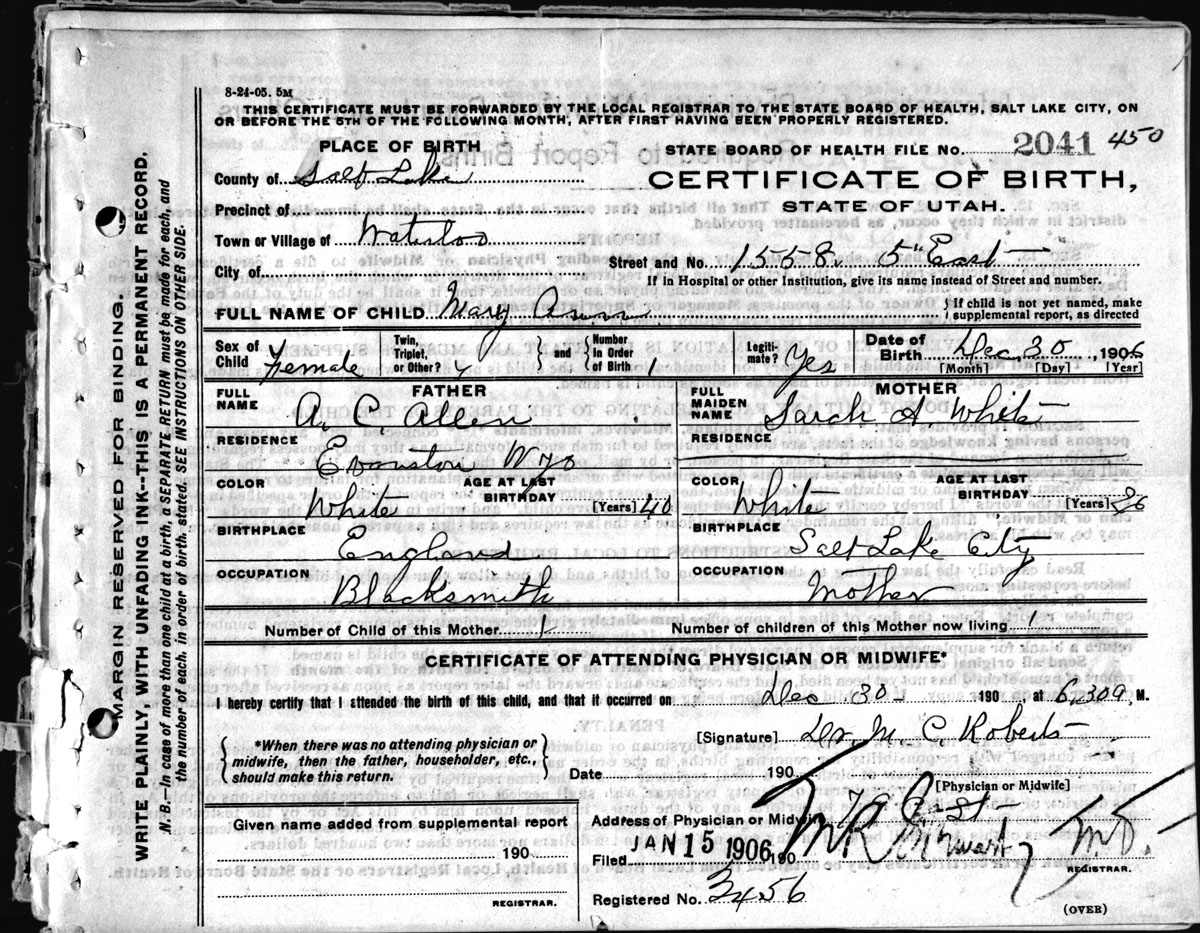 8-24-05. 5M
THIS CERTIFICATE MUST BE FORWARDED BY THE LOCAL REGISTRAR TO THE STATE BOARD OF HEALTH, SALT LAKE CITY, ON
OR BEFORE THE 5TH OF THE FOLLOWING MONTH, AFTER FIRST HAVING BEEN PROPERLY REGISTERED.
PLACE OF BIRTH
STATE BOARD OF HEALTH FILE NO. 2041 450
County of Salt Lake
CERTIFICATE OF BIRTH,
STATE OF UTAH.
Precinct of
Town or Village of Waterloo
Street and No. 1558 5" East
City of
If in Hospital or other Institution, give its name instead of Street and number.
FULL NAME OF CHILD Mary Ann
If child is not yet named, make
supplemental report, as directed
Sex of Child Female
Twin, Triplet, or Other?
and
Number in Order of Birth 1
Legiti-mate? Yes
Date of Birth Dec 30, 190
[Month] [Day] [Year]
FATHER
FULL NAME A. C. Allen
RESIDENCE
Evanston Wyo
COLOR White
AGE AT LAST BIRTHDAY
[Years] 40
BIRTHPLACE
England
OCCUPATION
Blacksmith
MOTHER
FULL MAIDEN NAME Sarah A White
RESIDENCE
COLOR White
AGE AT LAST BIRTHDAY
[Years]
BIRTHPLACE
Salt Lake City
OCCUPATION
Mother
Number of Child of this Mother 1
Number of children of this Mother now living 1
CERTIFICATE OF ATTENDING PHYSICIAN OR MIDWIFE*
I hereby certify that I attended the birth of this child, and that it occurred on Dec 30 190 , at 6.30 a. M.
*When there was no attending physician or
midwife, then the father, householder, etc.,
should make this return.
[Signature] Dr. M. C. Roberts
Date 190
[Physician or Midwife]
Given name added from supplemental report
190
REGISTRAR.
Address of Physician or Midwife
Filed JAN 15 1906 190
M.D.
REGISTRAR.
Registered No. 3456
(OVER)
MARGIN RESERVED FOR BINDING.
WRITE PLAINLY, WITH UNFADING INK--THIS IS A PERMANENT RECORD.
N. B.—In case of more than one child at a birth, a SEPARATE RETURN must be made for each, and
the number of each, in order of birth, stated. SEE INSTRUCTIONS ON OTHER SIDE.